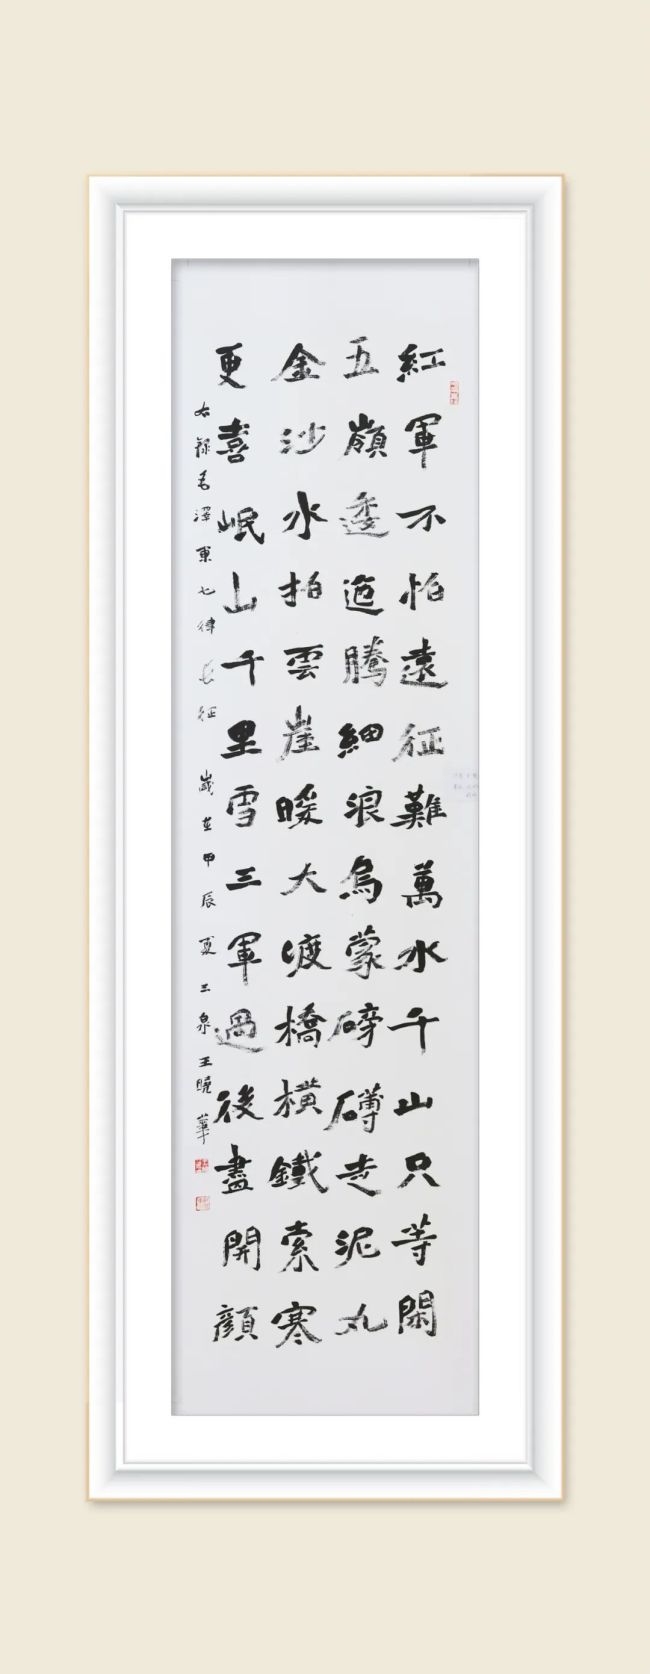 紅軍不怕遠征難萬水千山只等閑
五嶺逶迤騰細浪烏蒙磅礴走泥丸
金沙水拍雲崖暖大渡橋橫鐵索寒
更喜岷山千里雪三軍過後盡開顏
右録毛澤東七律長征 歲在甲辰夏三泉王曉華